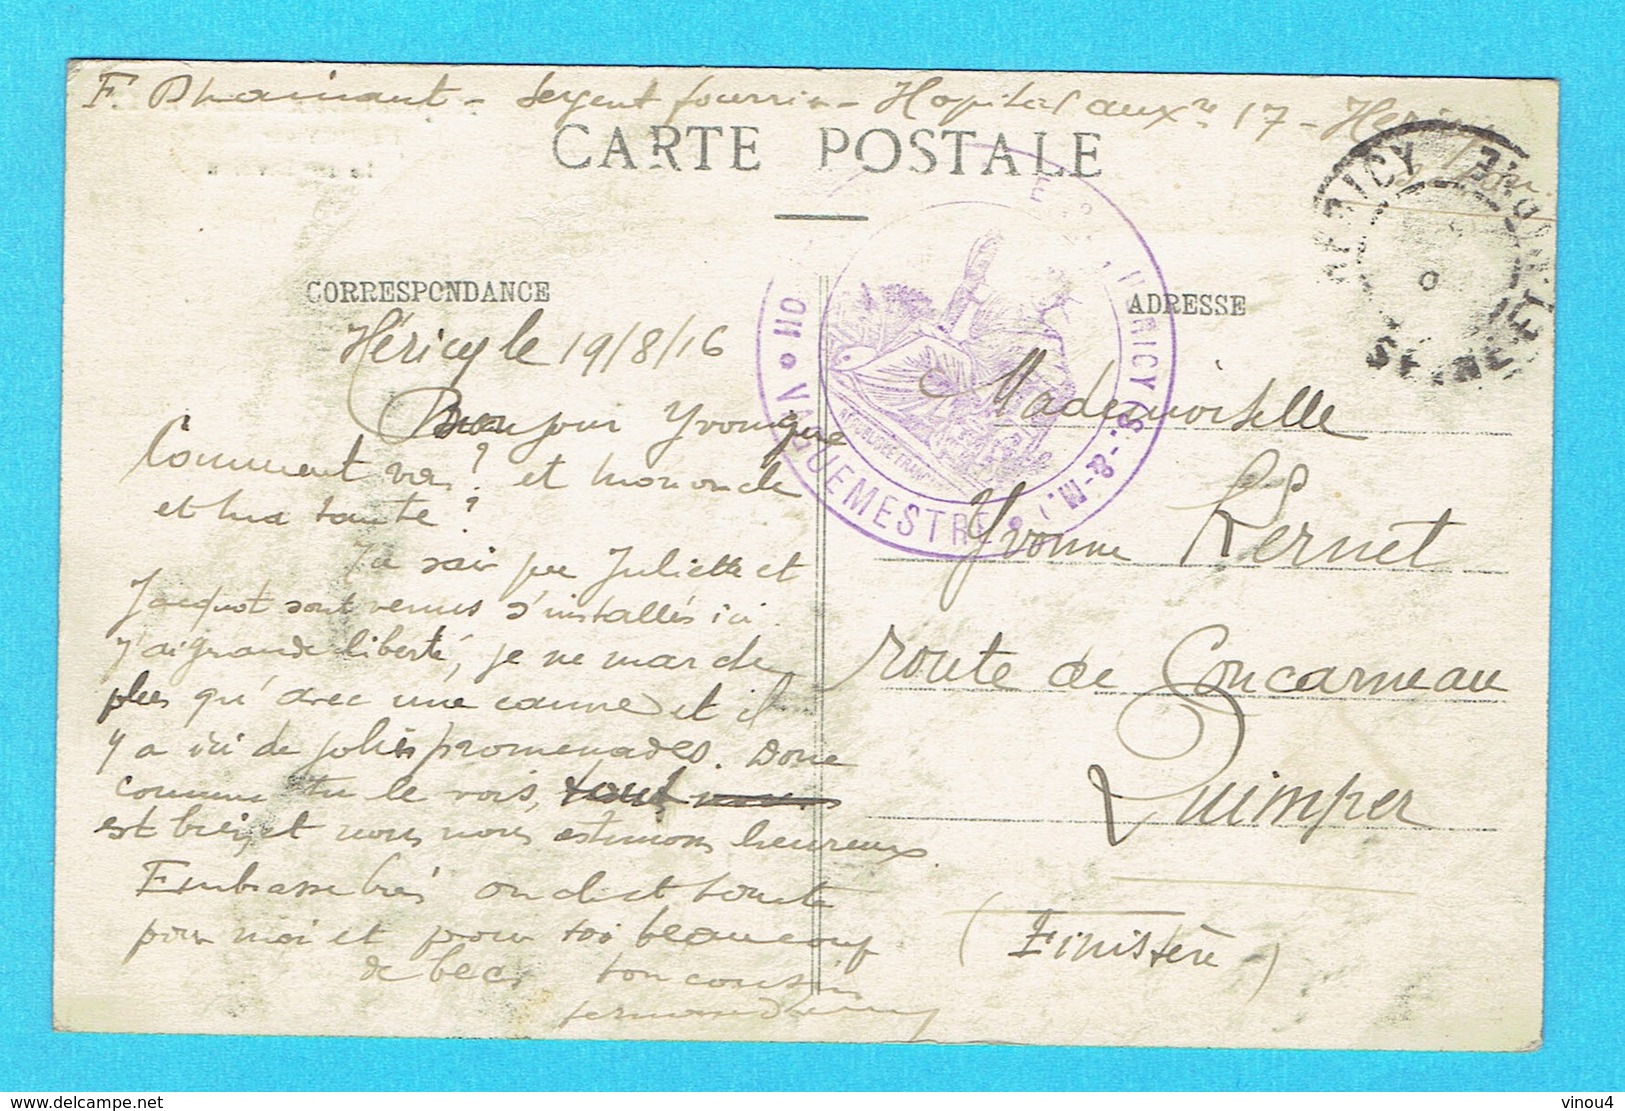 F. - Sergent fourrier - Hopital auxre 17 -
CARTE POSTALE
CORRESPONDANCE
ADRESSE
HÉRICY
SEINE-ET-MARNE
VAGUEMESTRE
HÉRICY (S.-&-M.)
RÉPUBLIQUE FRANC
Héricy le 19/8/16
Bonjour Yvonne
Comment vas? et mon oncle
et ma tante?
Tu sais que Juliette et
Jacquot sont venus s'installés ici
J'ai grande liberté, je ne marche
plus qu'avec une canne et il
y a ici de jolies promenades. Donc
comme tu le vois, tout
est bien, et nous nous estimons heureux.
Embrasse bien oncle et tante
pour moi et pour toi beaucoup
de becs. ton cousin
Mademoiselle
Yvonne Kernet
route de Concarneau
Quimper
(Finistère)
vinou4